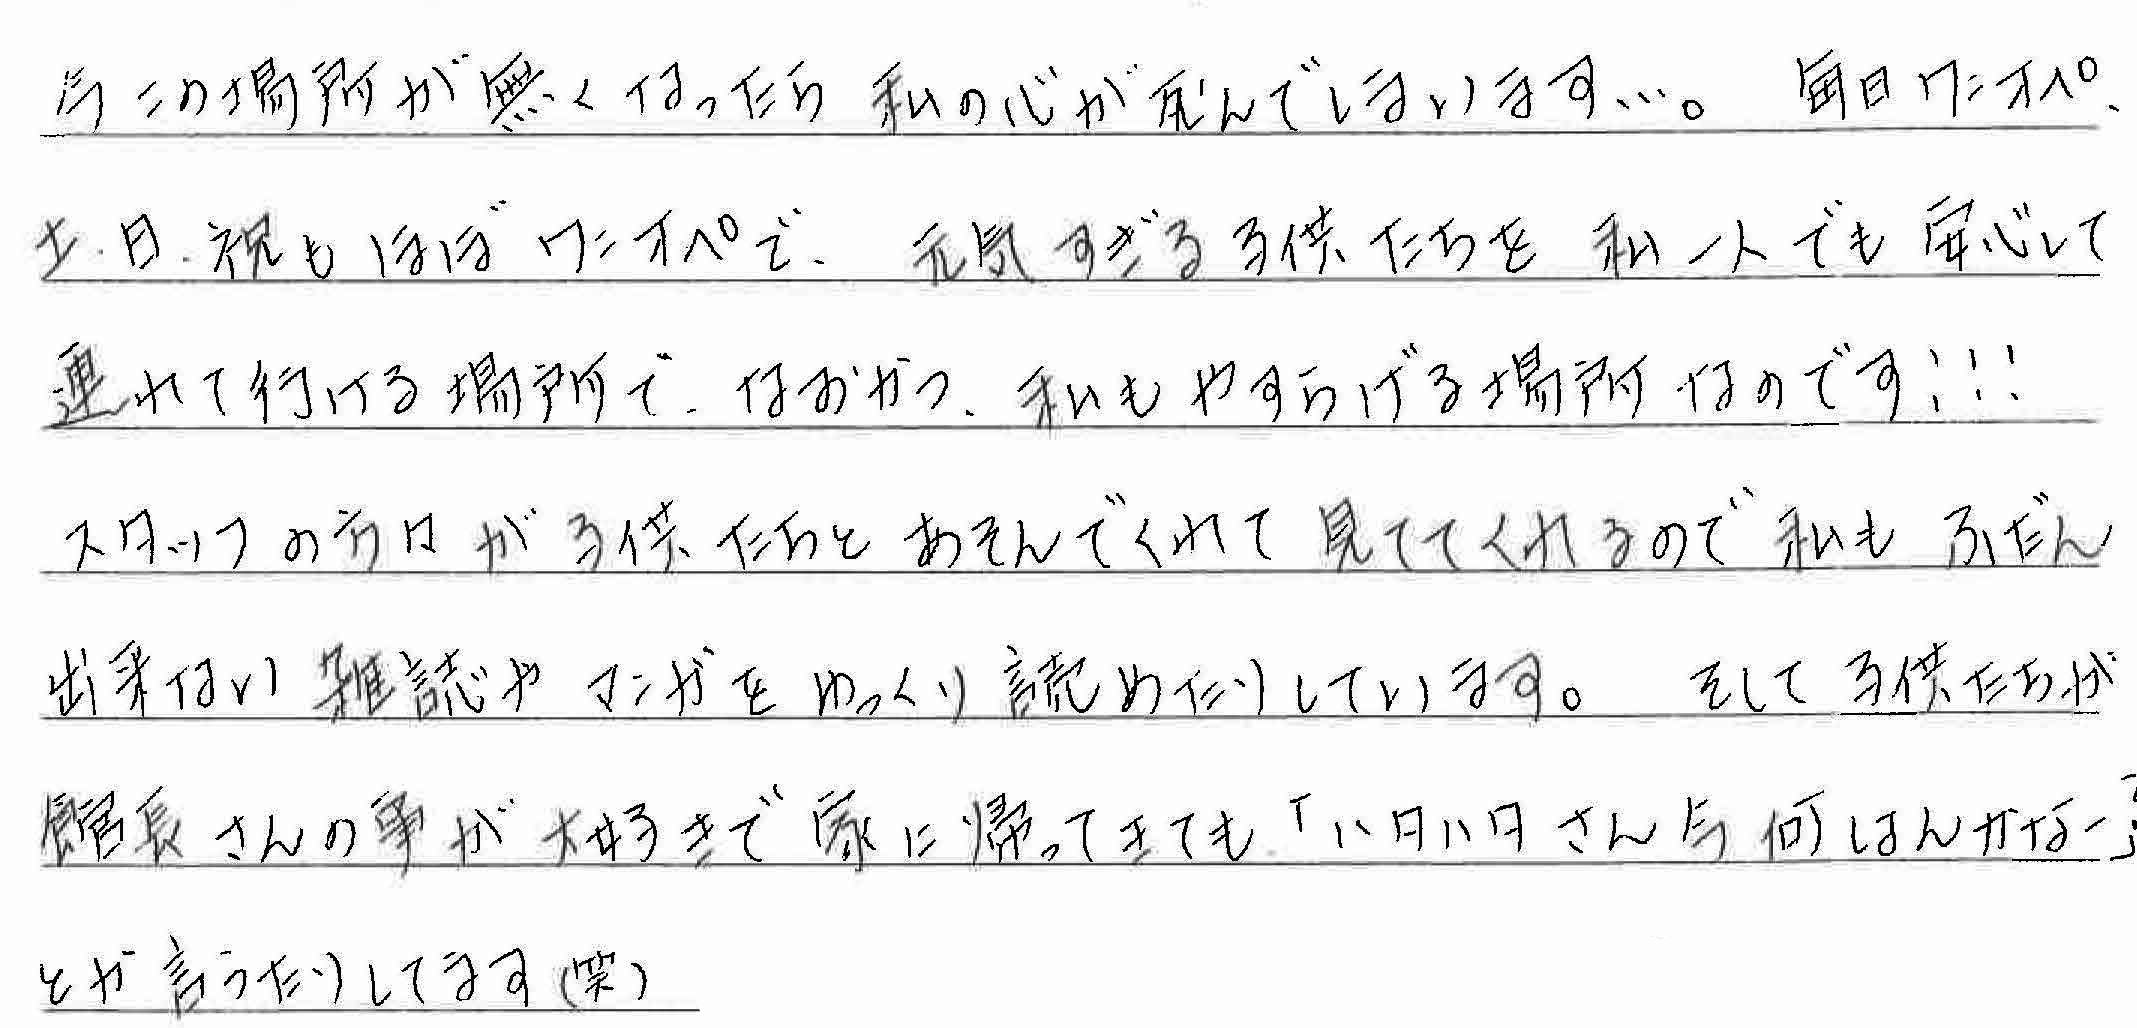 今この場所が無くなったら私の心が死んでしまいます…。 毎日ワンオペ、
土.日.祝もほぼワンオペで、元気すぎる子供たちを私一人でも安心して
連れて行ける場所で、なおかつ、私もやすらげる場所なのです!!!
スタッフの方々が子供たちとあそんでくれて見ててくれるので私もふだん
出来ない雑誌やマンガをゆっくり読めたりしています。 そして子供たちが
館長さんの事が大好きで家に帰ってきても「ハタハタさん今何しよんかなー?」
とか言うたりしてます(笑)